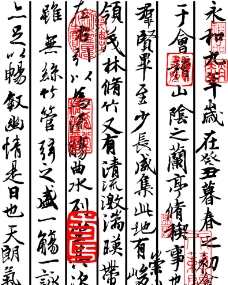 永和九年歲在癸丑暮春之初
于會稽山陰之蘭亭脩稧事也
羣賢畢至少長咸集此地有峻
領茂林脩竹又有清流激湍暎帶
左右引以為流觴曲水列坐其次
雖無絲竹管弦之盛一觴一詠
足以暢叙幽情是日也天朗氣